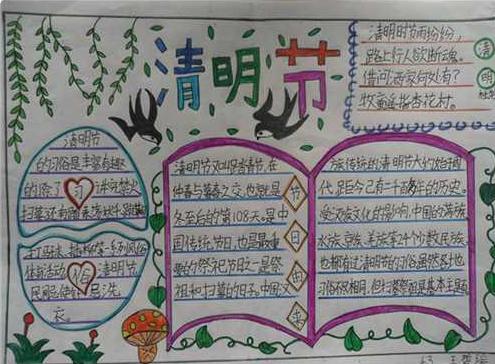 清明节
清明时节雨纷纷，
路上行人欲断魂。
借问酒家何处有？
牧童遥指杏花村。
清
明
清明节
的习俗是丰富有趣
的除了
习
讲究禁火
扫墓还有
打马球、插柳等一系列风俗
体育活动
俗
清明节
民
清明节又叫踏青节，在
仲春与暮春之交，也就是
冬至后的第108天。是中
国传统节日，也是最重
要的祭祀节日之一是祭
祖和扫墓的日子。中国汉
节
日
由
来
族传统的清明节大约始于周
代，距今已有二千五百多年的历史。
受汉族文化的影响，中国的满族
水族、京族、羌族等24个少数民族
也都有过清明节的习俗虽然各地
习俗不尽相同，但扫墓祭祖是基本主题